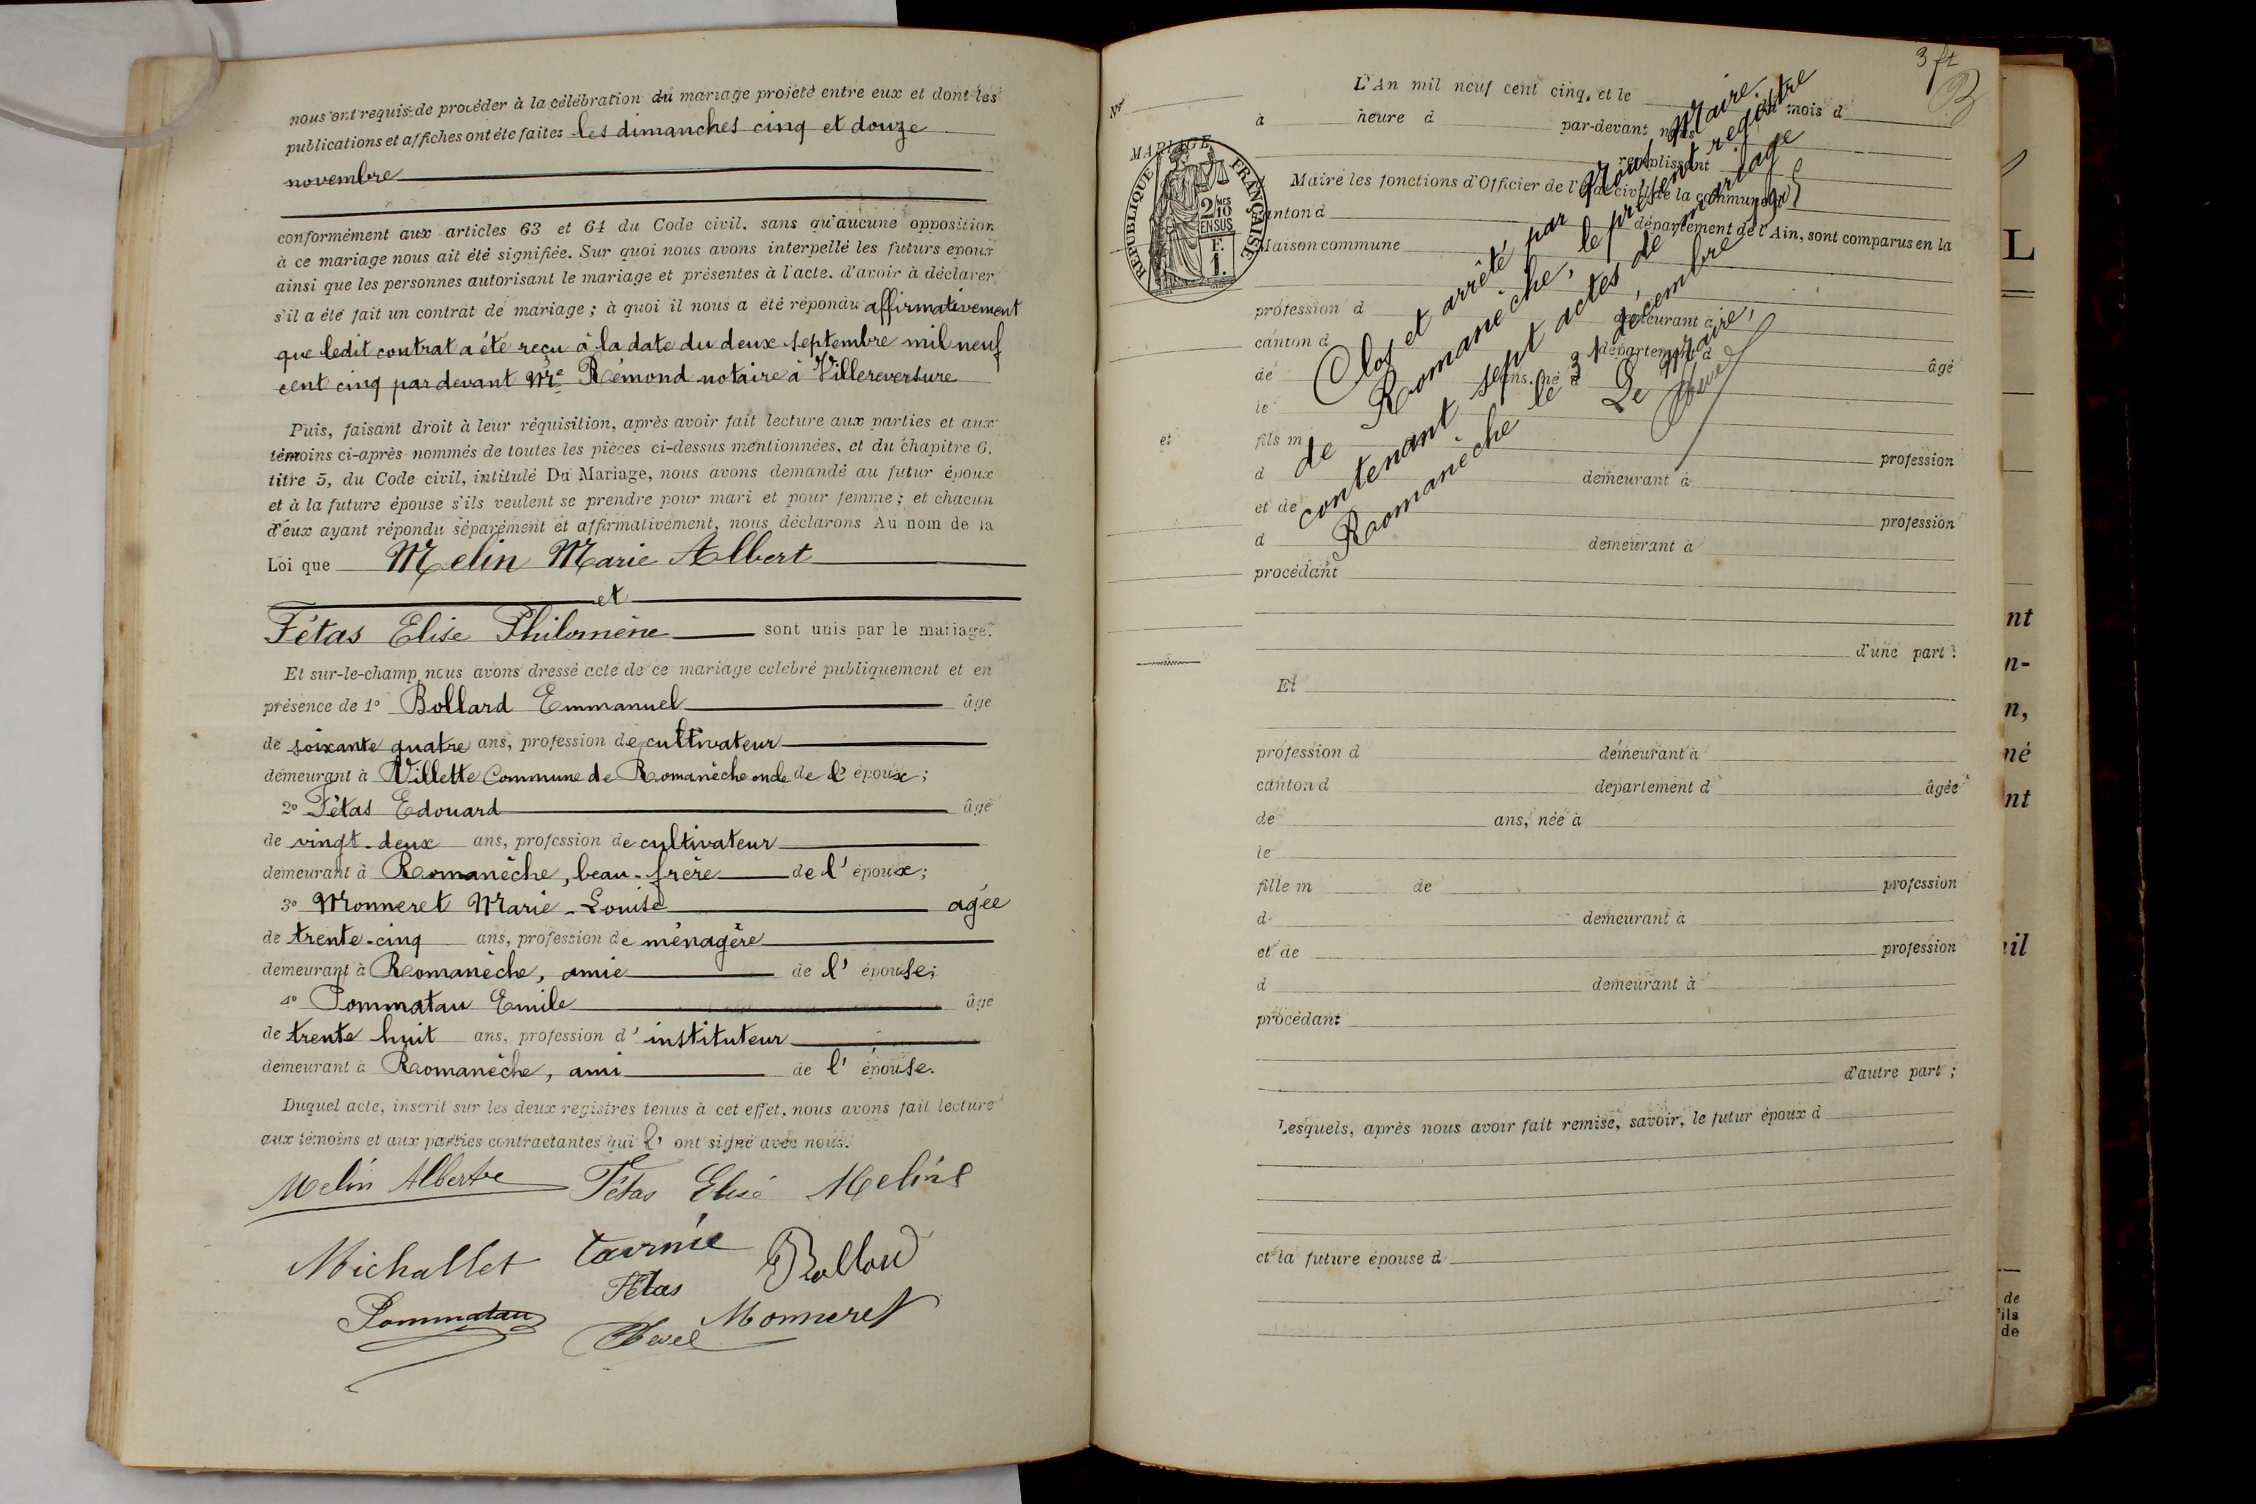 nous ont requis de procéder à la célébration du mariage projeté entre eux et dont les
publications et affiches ont été faites les dimanches cinq et douze
novembre
conformément aux articles 63 et 64 du Code civil, sans qu'aucune opposition
à ce mariage nous ait été signifiée. Sur quoi nous avons interpellé les futurs époux
ainsi que les personnes autorisant le mariage et présentes à l'acte, d'avoir à déclarer
s'il a été fait un contrat de mariage ; à quoi il nous a été répondu affirmativement
que ledit contrat a été reçu à la date du deux septembre mil neuf
cent cinq par devant Me Rémond notaire à Villereversure
Puis, faisant droit à leur réquisition, après avoir fait lecture aux parties et aux
témoins ci-après nommés de toutes les pièces ci-dessus mentionnées, et du chapitre 6,
titre 5, du Code civil, intitulé Du Mariage, nous avons demandé au futur époux
et à la future épouse s'ils veulent se prendre pour mari et pour femme ; et chacun
d'eux ayant répondu séparément et affirmativement, nous déclarons Au nom de la
Loi que Melin Marie Albert
et
Fétas Elise Philomène sont unis par le mariage.
Et sur-le-champ nous avons dressé acte de ce mariage célébré publiquement et en
présence de 1º Bollard Emmanuel âgé
de soixante quatre ans, profession de cultivateur
demeurant à Villette Commune de Romanèche oncle de l'époux ;
2º Fétas Edouard âgé
de vingt-deux ans, profession de cultivateur
demeurant à Romanèche, beau-frère de l'époux ;
3º Monneret Marie-Louise agée
de trente-cinq ans, profession de ménagère
demeurant à Romanèche, amie de l'épouse ;
4º Pommatau Emile âgé
de trente huit ans, profession d'instituteur
demeurant à Romanèche, ami de l'épouse.
Duquel acte, inscrit sur les deux registres tenus à cet effet, nous avons fait lecture
aux témoins et aux parties contractantes qui l'ont signé avec nous.
Melin Albert Fétas Elise Melin
Michallet Bollard
Fétas
Pommatau Monneret
3 ft
Nº
L'An mil neuf cent cinq, et le du mois d
à heure d par-devant nous
remplissant
Maire les fonctions d'Officier de l'état civil de la commune d
canton d département de l'Ain, sont comparus en la
Maison commune
MARIAGE
RÉPUBLIQUE FRANÇAISE
2 MES 10 EN SUS
F. 1.
profession d demeurant à
canton d département d
de ans, né à âgé
le
et fils m
profession
d demeurant à
et de profession
d demeurant à
procédant
d'une part :
Clos et arrêté par nous Maire
de Romanèche, le présent registre
contenant sept actes de mariage
Romanèche le 31 décembre 1905
Le Maire,
Et
profession d demeurant à
canton d département d âgée
de ans, née à
le
fille m de profession
d demeurant à
et de profession
d demeurant à
procédant
d'autre part ;
Lesquels, après nous avoir fait remise, savoir, le futur époux d
et la future épouse d
L
nt
n-
n,
né
nt
il
de
ils
de